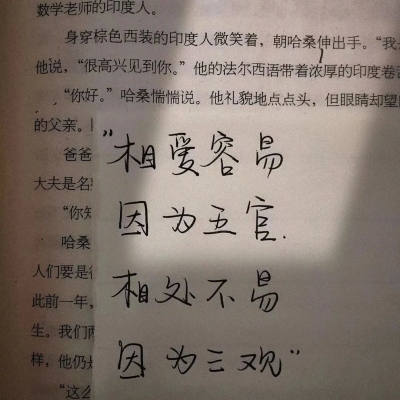 数学老师的印度人。
身穿棕色西装的印度人微笑着，朝哈桑伸出手。“我
他说，“很高兴见到你。”他的法尔西语带着浓厚的印度卷
“你好。”哈桑惴惴说。他礼貌地点点头，但眼睛却望
的父亲。
爸爸
大夫是名
“你
哈桑
人们要是
此前一年，
生。我们
样，他仍
“这么
“相爱容易
因为五官.
相处不易
因为三观”